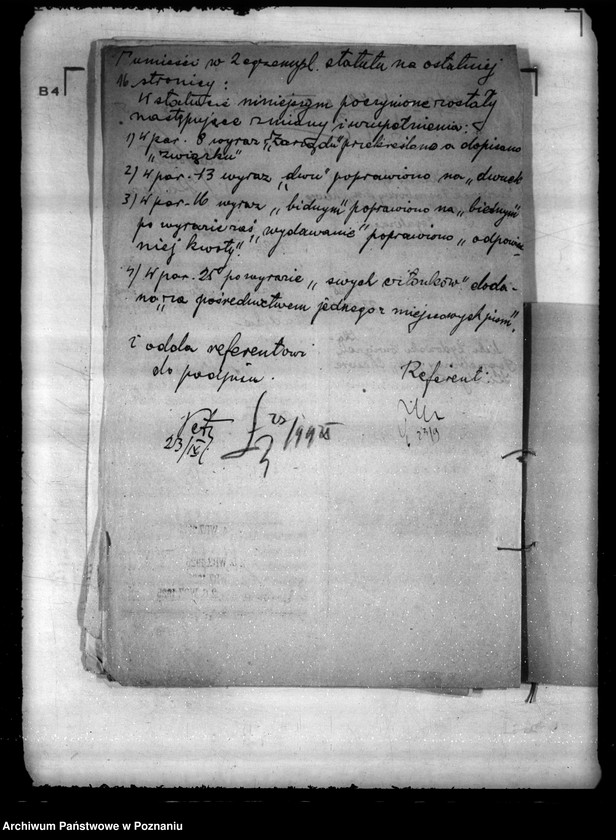 B4
Pumieści w 2 egzempl. statutu na ostatniej
16 stronicy:
W statucie niniejszym poczynione zostały
następujące zmiany i uzupełnienia:
1) W par. 8 wyraz „zarządu" przekreślono a dopisano
„związku"
2) W par. 13 wyraz „dwu" poprawiono na „dwuch
3) W par. 16 wyraz „bidnym" poprawiono na „bieżnym"
po wyrazie zaś „wydawanie" poprawiono „odpowied-
niej kwoty".
4) W par. 25 po wyrazie „swych członków" doda-
no „za pośrednictwem jednego z miejscowych pism".
i odda referentowi
do podpisu.
Referent:
23/IX
23/9
Archiwum Państwowe w Poznaniu